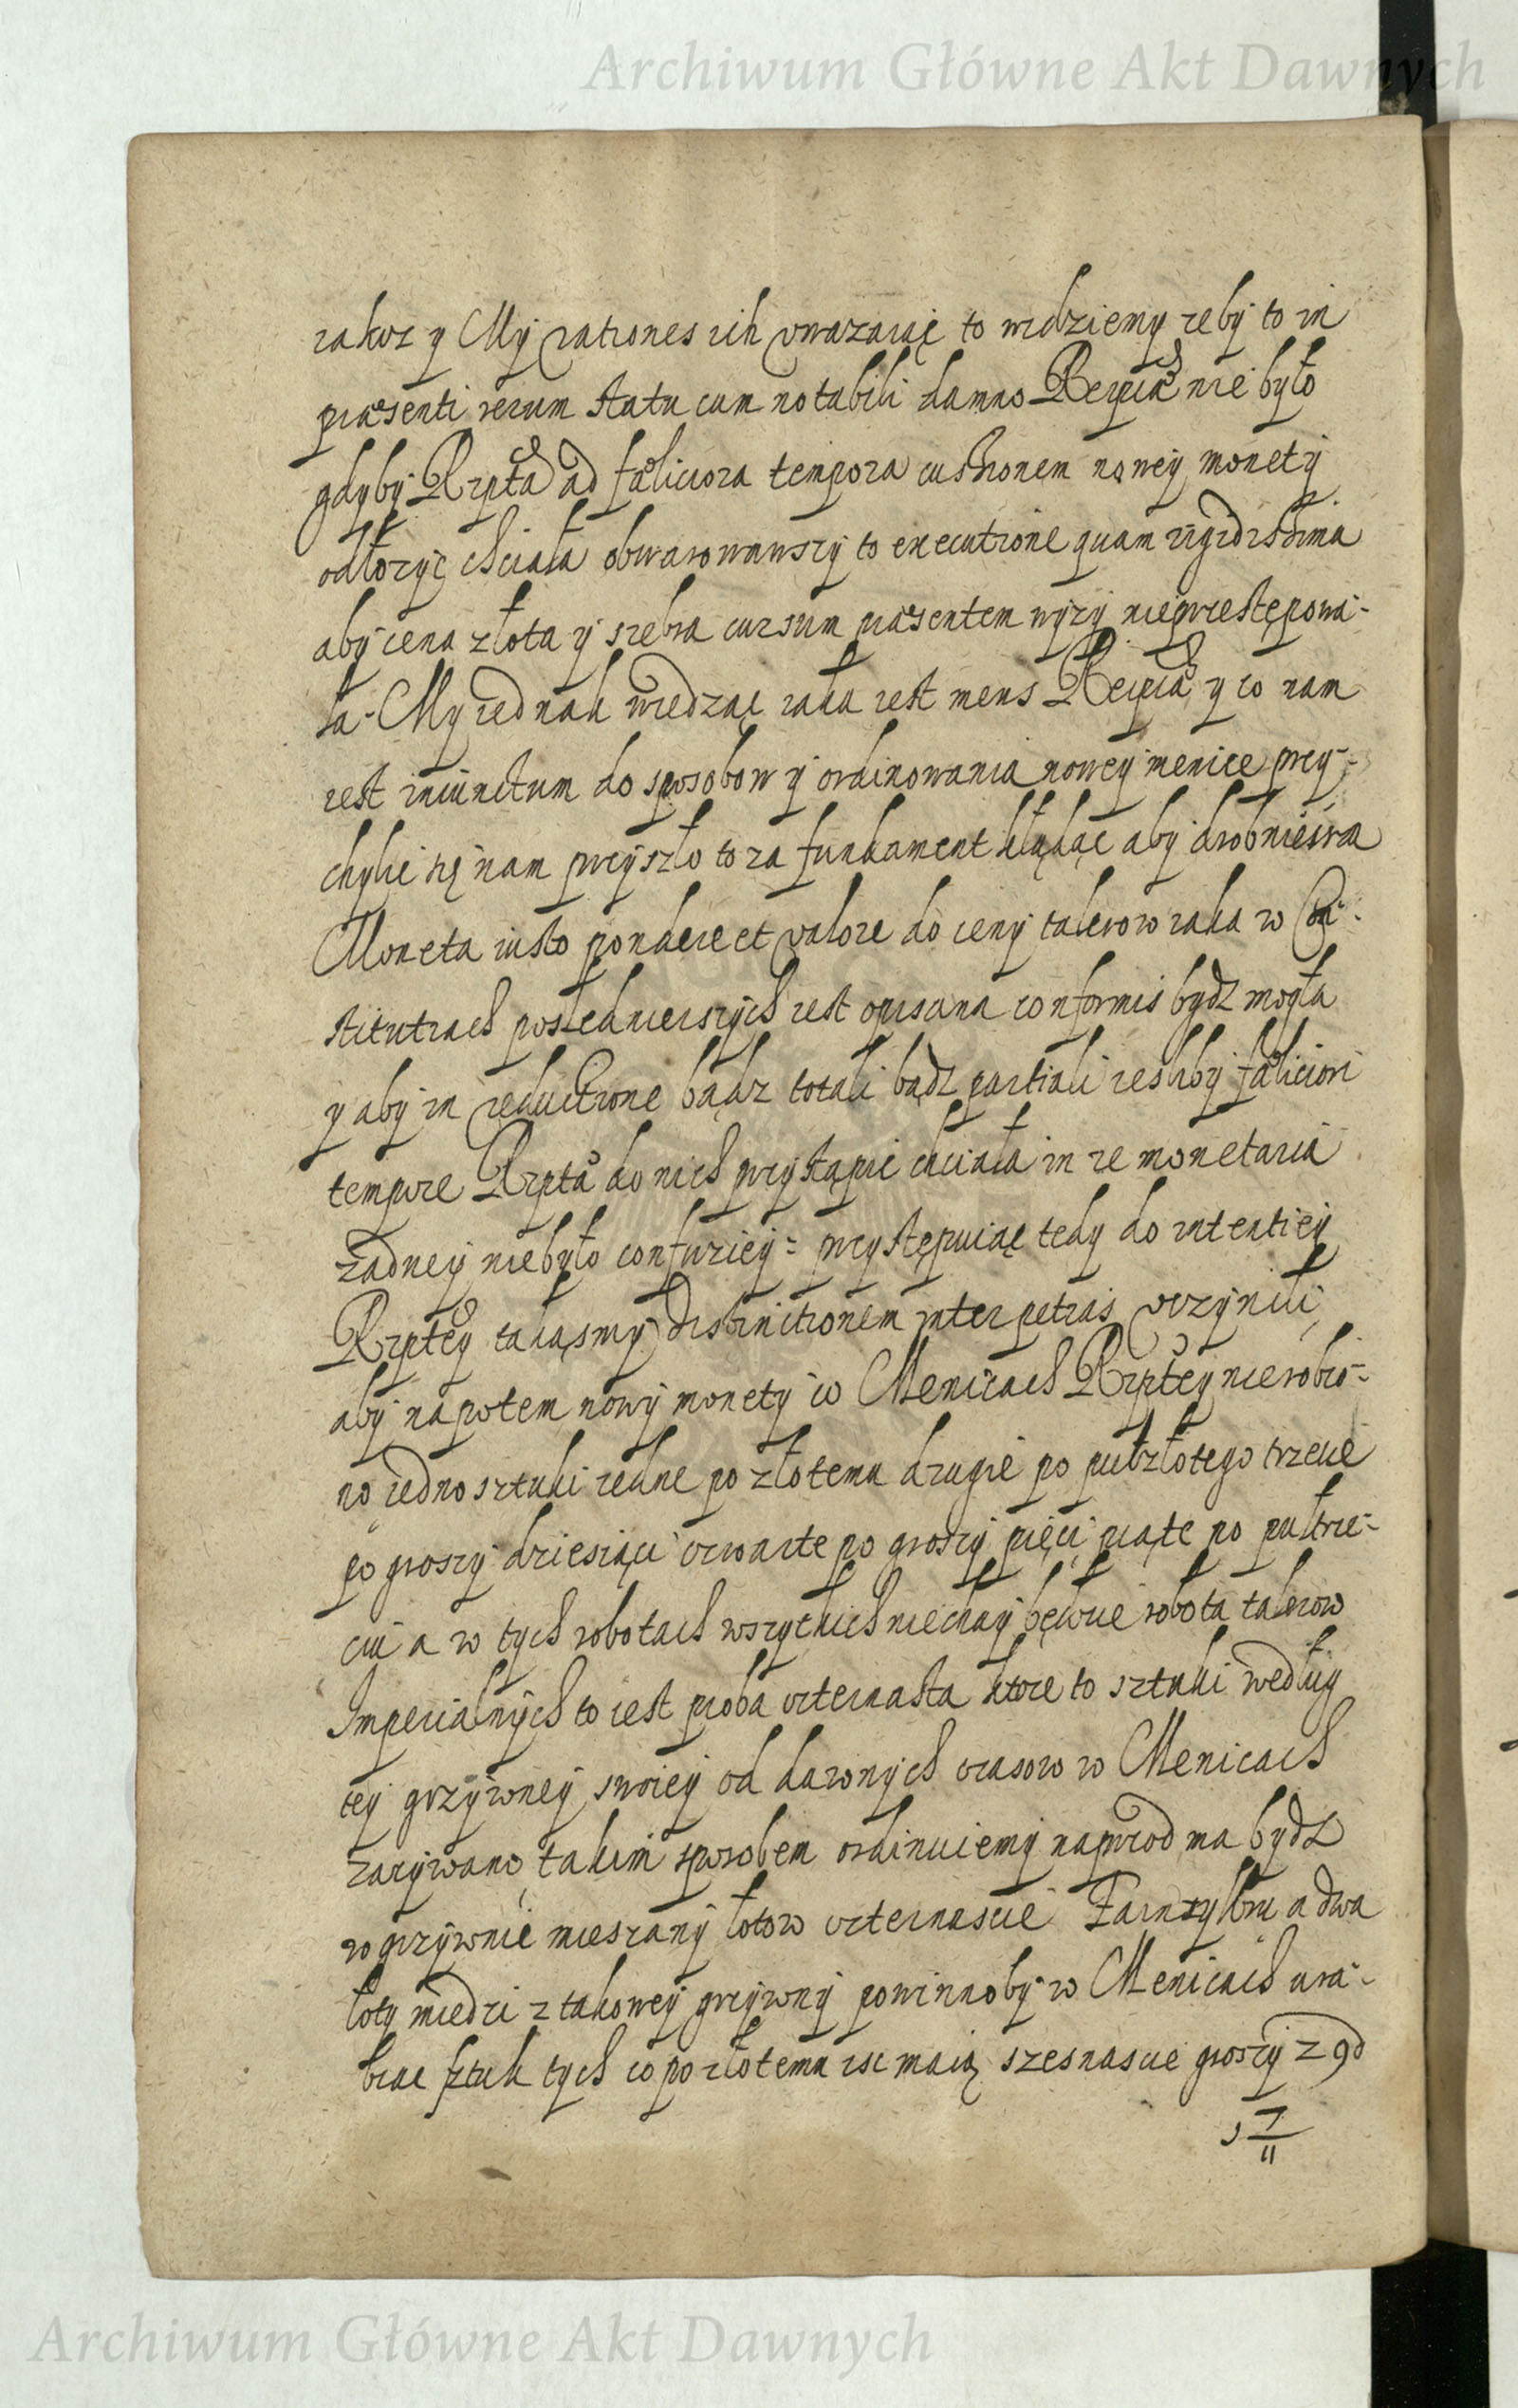 Archiwum Główne Akt Dawnych
iakoz y My rationes ich uwazaiąc to widziemy zeby to in
præsenti rerum statu cum notabili damno Reipcæ nie było
gdyby Rzpta ad fæliciora tempora cussionem nowey monety
odłozyc chciała obwarowawszy to executione quam rigidissima
aby cena złota y srebra cursum præsentem wyzy nieprzestępowa-
ła. My iednak wiedząc iaka iest mens Reipcæ y co nam
iest iniunctum do sposobow y ordinowania nowey menice przy-
chylic się nam przyszło to za fundament kładąc aby drobnieisza
Moneta iusto pondere et valore do ceny talerow iaka w Con-
stitutiach poslednieiszych iest opisana conformis bydz mogła
y aby in reductione bądz totali bądz partiali iesliby fæliciori
tempore Rzpta do nich przystąpic chciała in re monetaria
zadney niebyło confuziey: przystępuiąc tedy do intentiey
Rzptey takąsmy distinctionem inter petias uczynili
aby napotem nowy monety w Menicach Rzptey nierobio-
no iedno sztuki iedne po złotemu drugie po pułzłotego trzecie
po groszy dziesiąci czwarte po groszy pięci piąte po pułtrze-
ciu a w tych robotach wszytkich niechay będzie robota talerow
Imperialnych to iest proba czternasta ktore to sztuki według
tey grzywney swoiey od dawnych czasow w Menicach
zazywano takim sposobem ordinuiemy naprzod ma bydz
w grzywnie mieszany łotow czternascie Fainzylbru a dwa
łoty miedzi z takowey grzywny powinnoby w Menicach ura-
biac sztuk tych co po złotemu isc maią szesnascie groszy z 9d
5 7/11
Archiwum Główne Akt Dawnych